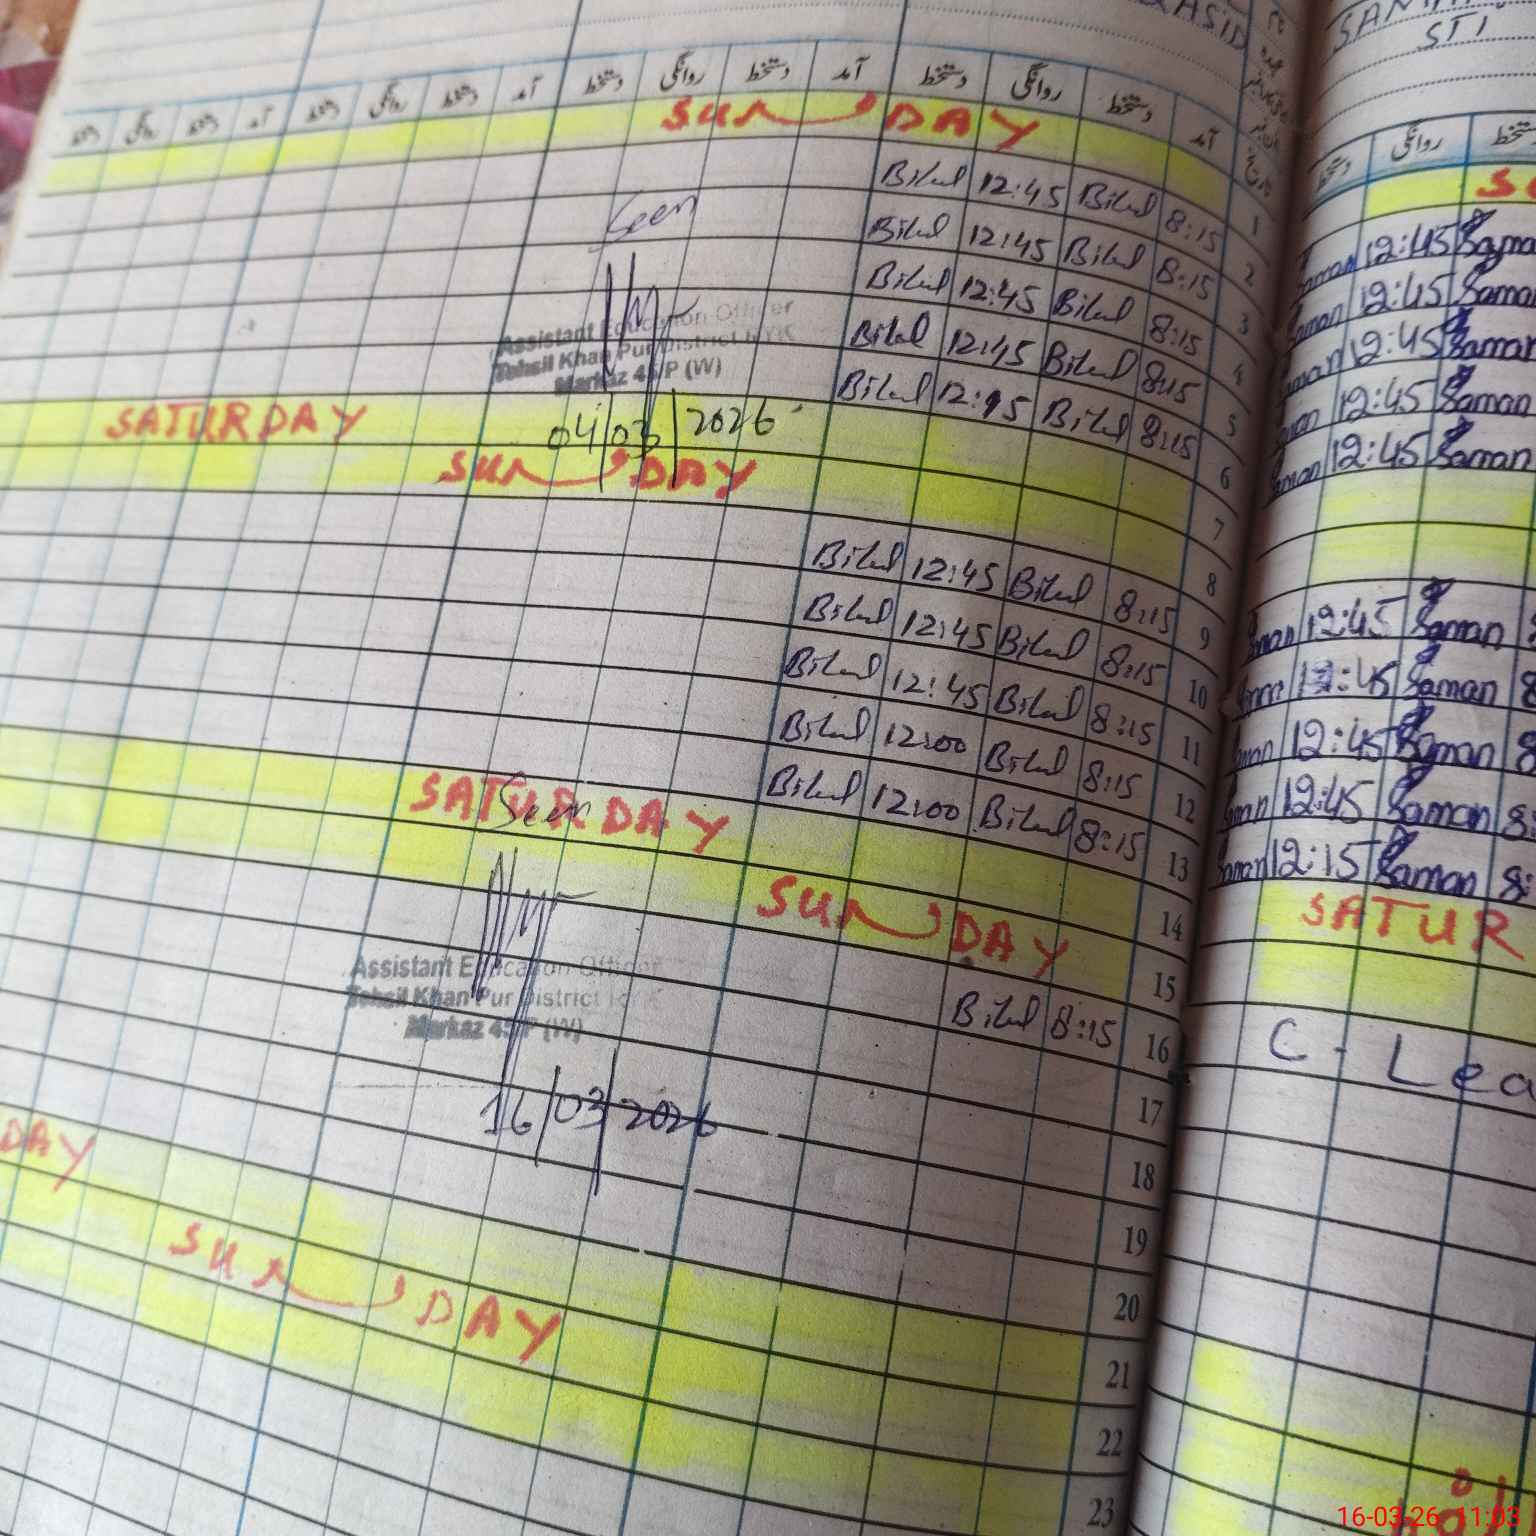 QASID
SAN
STI
آمد دستخط روانگی دستخط آمد دستخط روانگی دستخط آمد دستخط روانگی دستخط آمد دستخط روانگی دستخط
دستخط روانگی دستخط
SUNDAY
1
Bilal 12:45 Bilal 8:15 2
Bilal 12:45 Bilal 8:15 3
Bilal 12:45 Bilal 8:15 4
Bilal 12:45 Bilal 8:15 5
Bilal 12:45 Bilal 8:15 6
Seen
Assistant Education Officer
Tehsil Khan Pur District RYK
Markaz 45/P (W)
04/03/2026
SATURDAY
7
SUNDAY
8
Bilal 12:45 Bilal 8:15 9
Bilal 12:45 Bilal 8:15 10
Bilal 12:45 Bilal 8:15 11
Bilal 12:00 Bilal 8:15 12
Bilal 12:00 Bilal 8:15 13
SATURDAY
14
Seen
SUNDAY
15
Bilal 8:15 16
Assistant Education Officer
Tehsil Khan Pur District RYK
Markaz 45/P (W)
16/03/2026
17
18
19
20
DAY
21
SUNDAY
22
23
Saman 12:45 Saman
Saman 12:45 Saman
Saman 12:45 Saman
Saman 12:45 Saman
Saman 12:45 Saman
Saman 12:45 Saman 8
Saman 12:45 Saman 8
Saman 12:45 Saman 8
Saman 12:45 Saman 8:
Saman 12:15 Saman 8:
SATUR
C-Lea
16-03-26 11:03